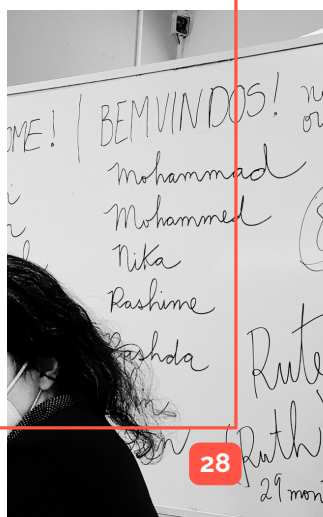 OME! | BEMVINDOS!
Mohammad
Mohammed
Nika
Rashime
Rashda
Rute
Ruth
29 mon
28